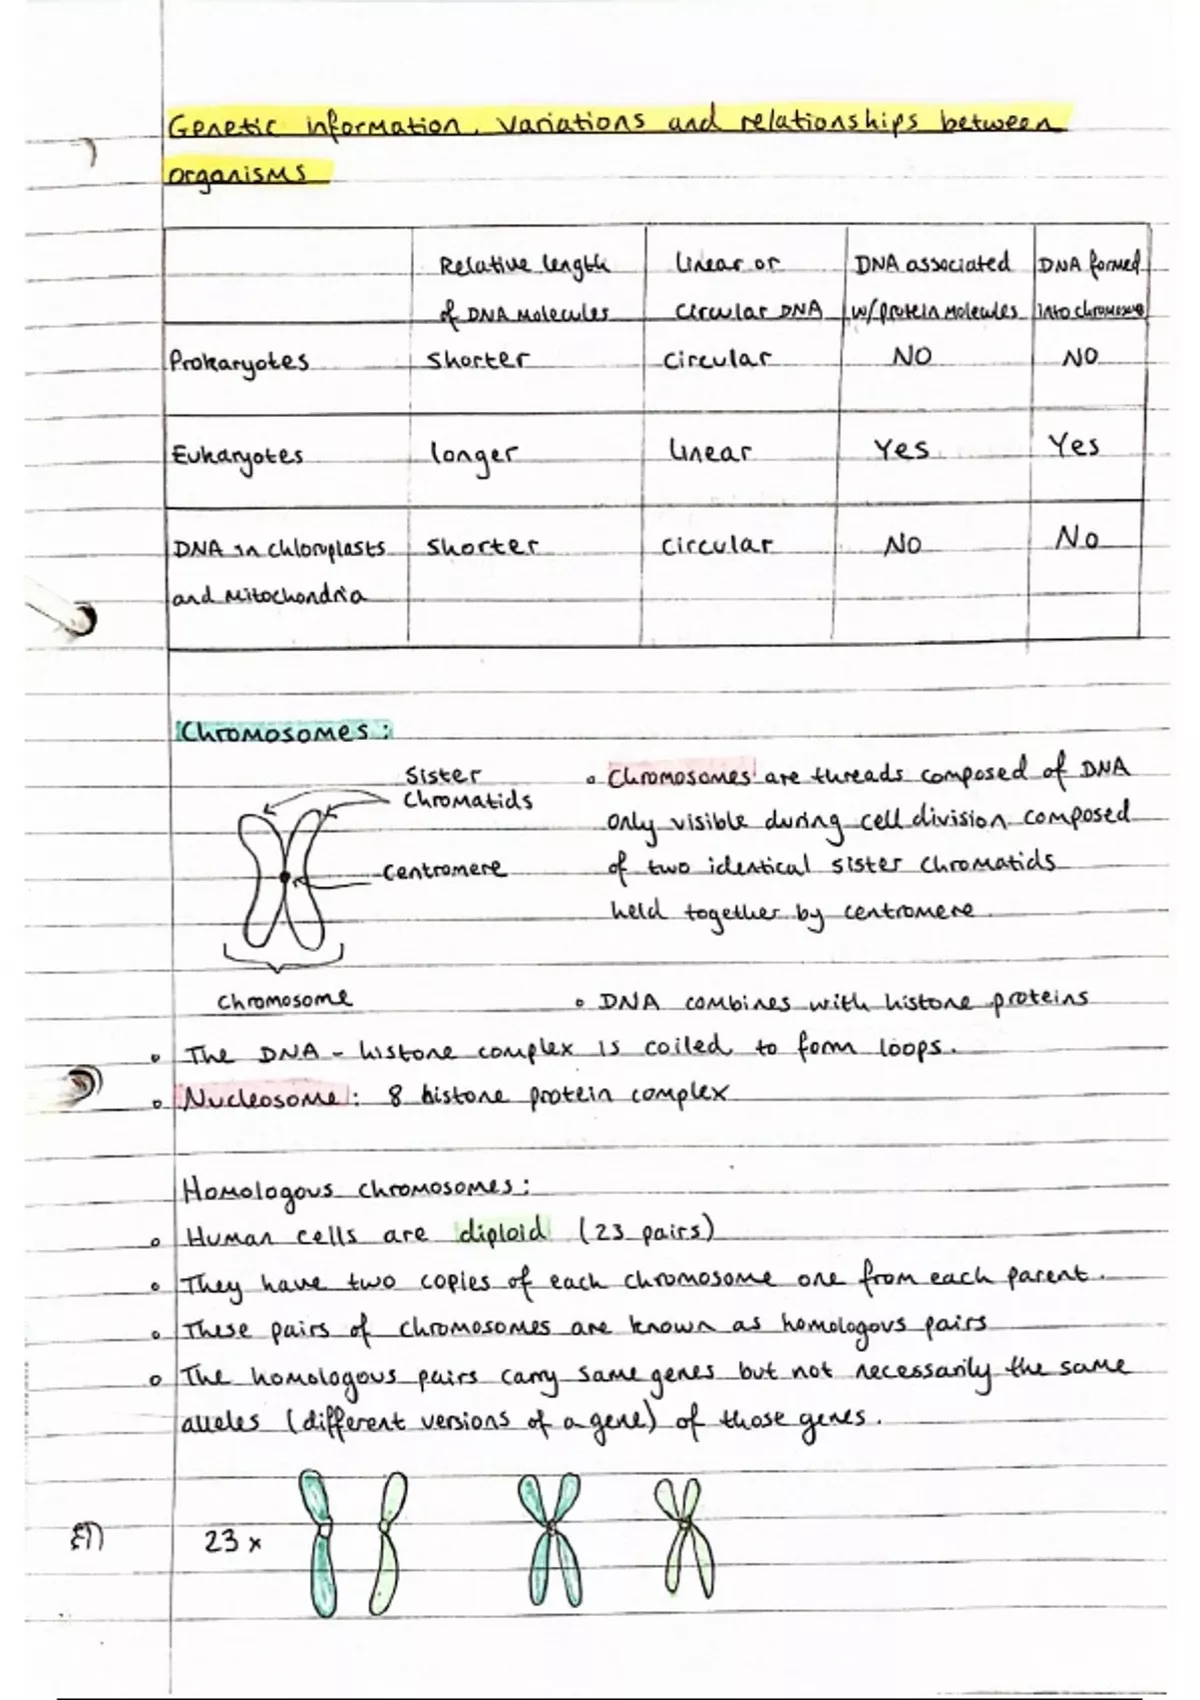 Genetic information, variations and relationships between
organisms
Relative length of DNA Molecules
Linear or Circular DNA
DNA associated w/protein Molecules
DNA formed into chromosome
Prokaryotes shorter circular NO NO
Eukaryotes longer linear Yes Yes
DNA in chloroplasts shorter circular NO No
and Mitochondria
Chromosomes:
Sister
Chromatids
Centromere
Chromosome
Chromosomes are threads composed of DNA
only visible during cell division composed
of two identical sister chromatids
held together by centromere.
DNA combines with histone proteins
The DNA - histone complex is coiled to form loops.
Nucleosome: 8 histone protein complex
Homologous chromosomes:
Human cells are diploid (23 pairs)
They have two copies of each chromosome one from each parent.
These pairs of chromosomes are known as homologous pairs
The homologous pairs carry same genes but not necessarily the same
alleles (different versions of a gene) of those genes.
23 x